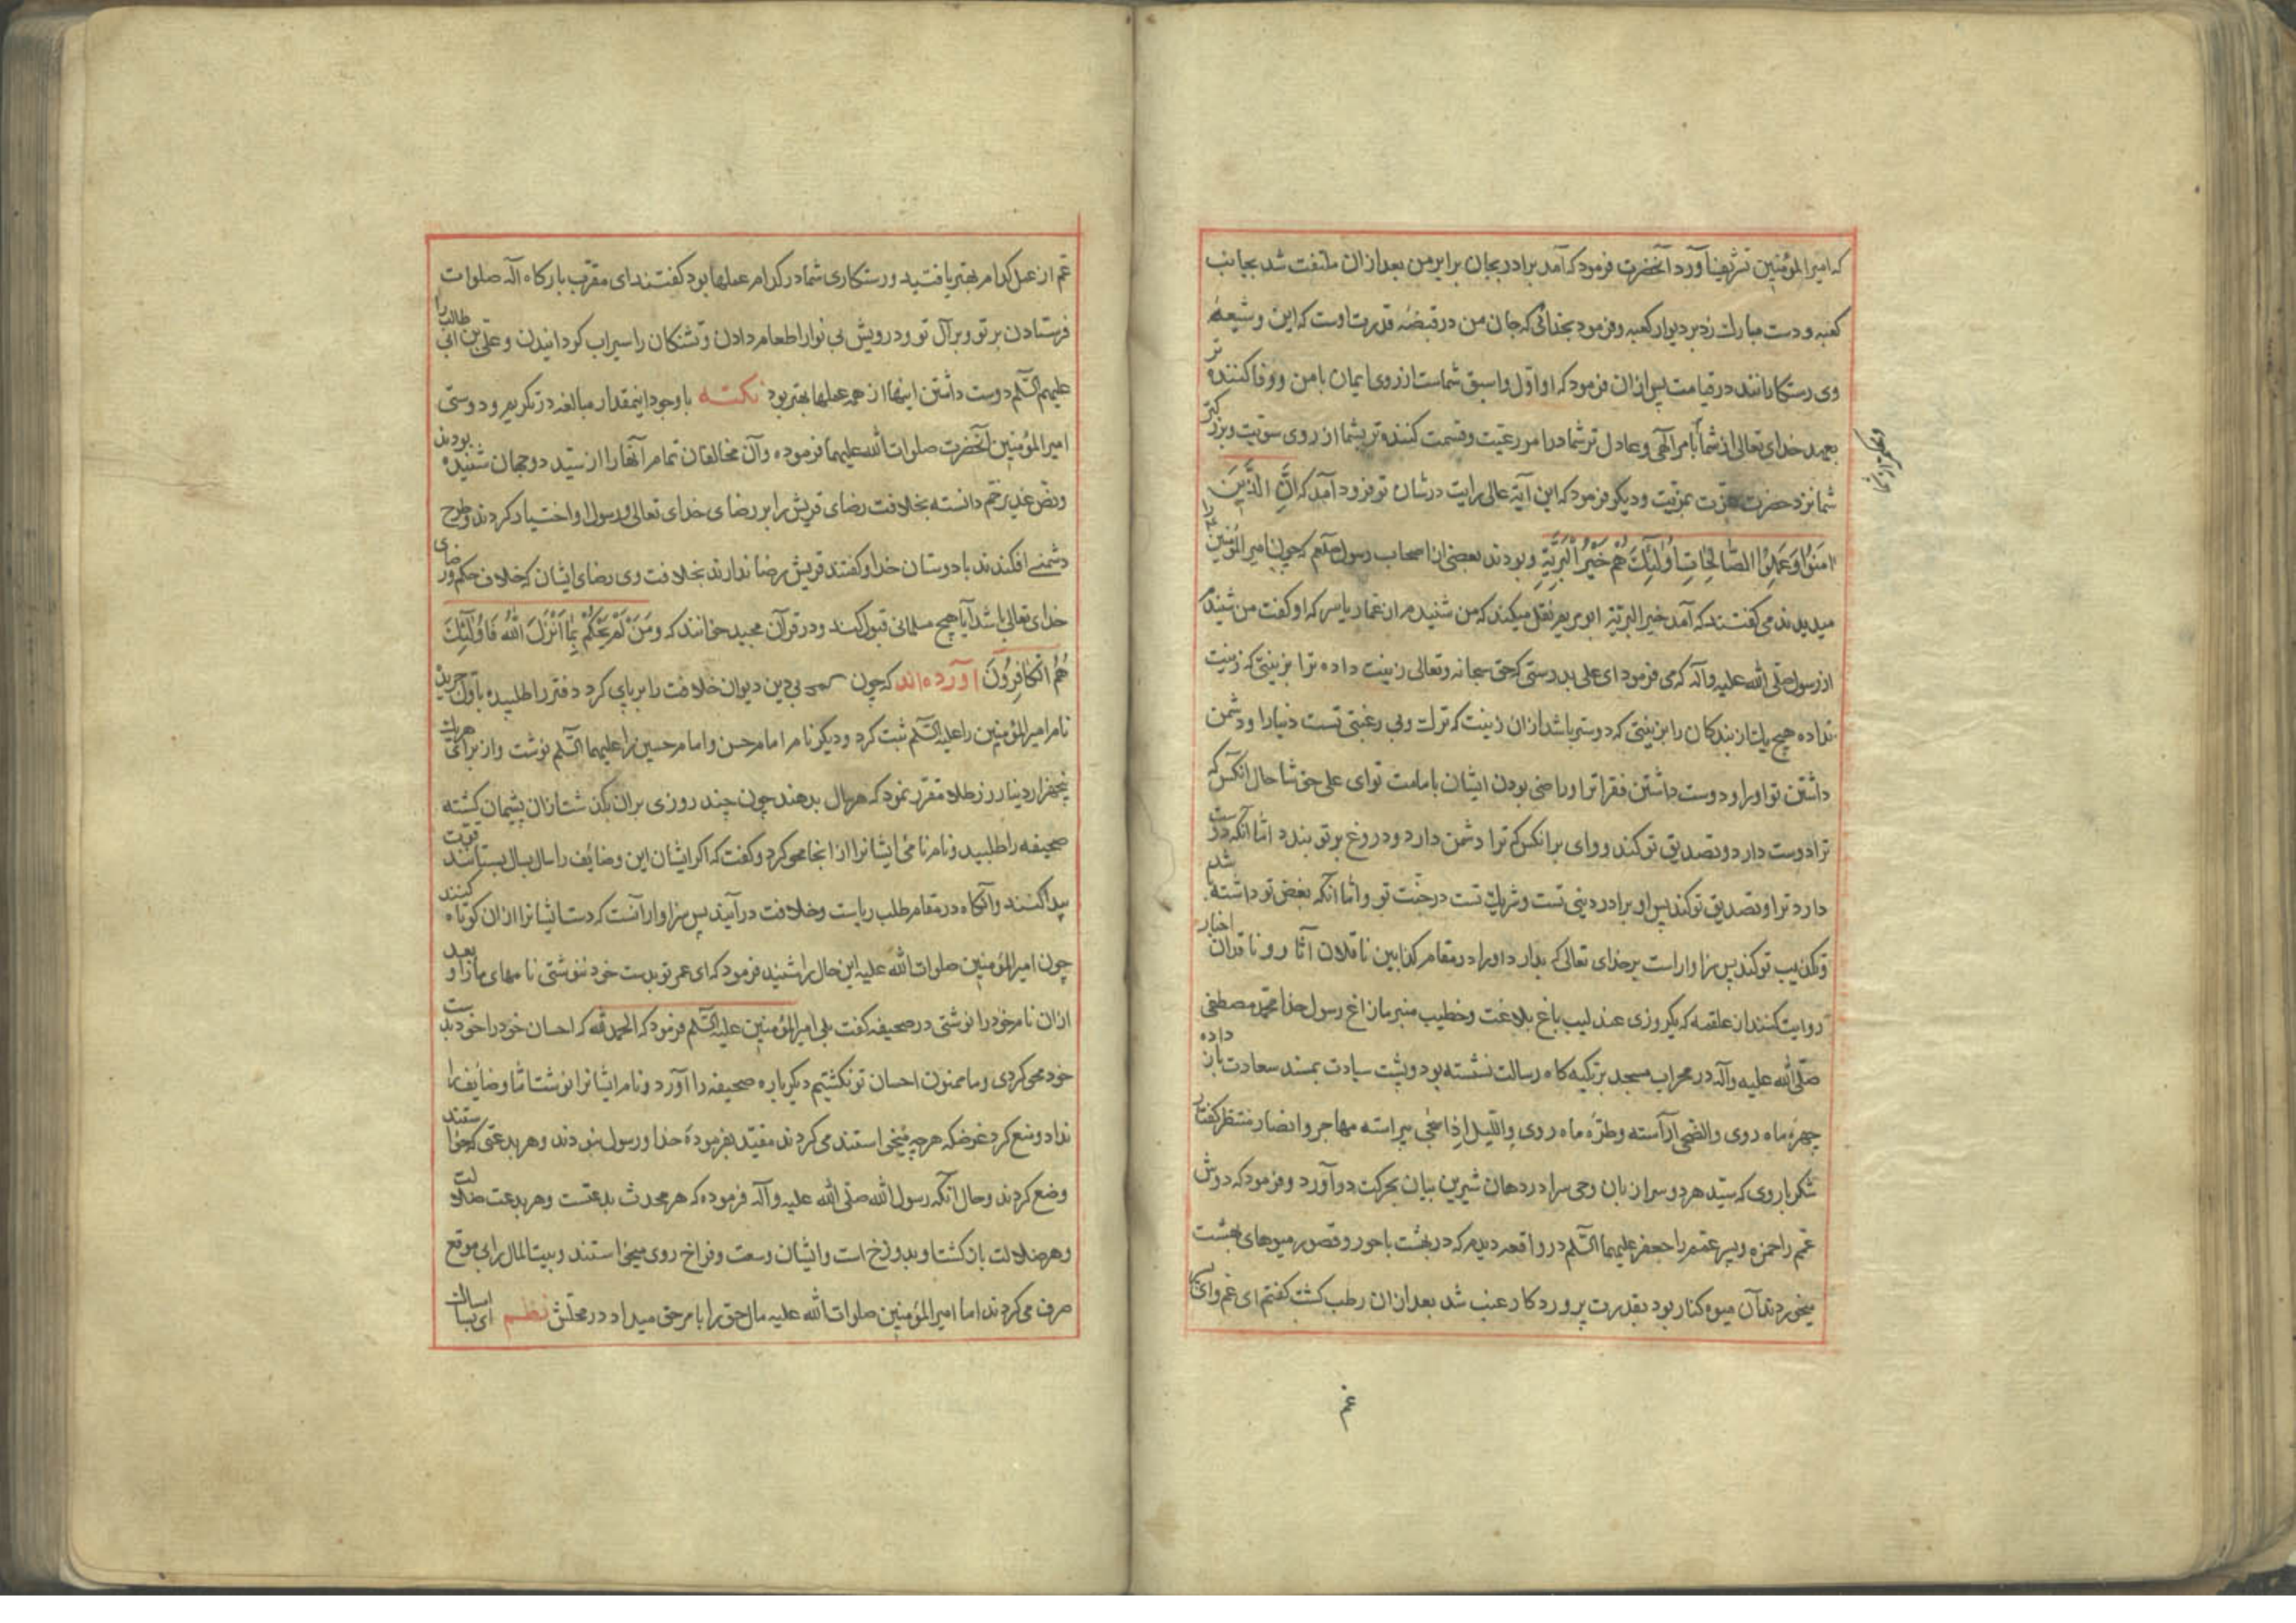 که امیرالمؤمنین تشریف آورد آنحضرت فرمود که آمد برادر بجان برابر من بعد ازان ملتفت شد بجانب
کعبه و دست مبارک زد بر دیوار کعبه و فرمود بخدائی که جان من در قبضه قدرت اوست که این و شیعهٔ
وی رستکارانند در قیامت پس ازان فرمود که او اوّل و اسبق شماست از روی ایمان با من و وفا کننده تر
بعهد خدای تعالی از شما بامر آلهی و عادل تر شما در امر رعیّت و قسمت کننده تر بشما از روی سویّت و بزرکتر
شما نزد حضرت عزّت بمزیّت و دیکر فرمود که این آیهٔ عالی رایت در شان تو فرود آمد که اِنَّ الَّذینَ
امَنُوا وَعَمِلُوا الصَّالِحَاتِ اُولٰئِكَ هُمْ خَیْرُ الْبَرِیَّةِ و بودند بعضی از اصحاب رسول صلعم که چون امیرالمؤمنین را
میدیدند می کفتند که آمد خیر البریّة ابو مریم نقل میکند که من شنیدم از عمار یاسر که او کفت من شنیدم
از رسول صلّی الله علیه وآله که می فرمود ای علی بدرستی که حق سبحانه وتعالی زینت داده ترا بزینتی که زینت
نداده هیچ یک از بندکان را بزینتی که دوستر باشد ازان زینت که تراست و بی رغبتی تست دنیا را و دشمن
داشتن تو او را و دوست داشتن فقرا ترا و راضی بودن ایشان بامامت تو ای علی خوشا حال انکس که
ترا دوست دارد و تصدیق تو کند و وای بر انکس که ترا دشمن دارد و دروغ بر تو بندد امّا انکه دوست
دارد ترا و تصدیق تو کند پس او برادر دینی تست و شریک تست در جنّت تو و امّا آنکه بغض تو داشته شد
و تکذیب تو کند پس سزاوار است بر خدای تعالی که بدارد او را در مقام کذابین ناقلان آثار و ناقدان اخبار
روایت کنند از علقمه که یکروزی عندلیب باغ بلاغت و خطیب منبر مازاغ رسول خدا محمّد مصطفی
صلّی الله علیه وآله در محراب مسجد بر تکیه کاه رسالت نشسته بود و پشت سیادت بمسند سعادت باز داده
چهرهٔ ماه روی والضحی آراسته و طرّه ماه روی واللّیل اذا سجی پیراسته مهاجر و انصار منتظر کفتار
شکر بار وی که سیّد هر دو سرا زبان وحی سرا در دهان شیرین بیان بحرکت در آورد و فرمود که دوش
عمّم را حمزه و پسر عمّم را جعفر علیهما السّلم در واقعه دیدم که در بهشت با حور و قصور میوهای بهشت
میخوردند آن میوه کنار بود بقدرت پروردکار عنب شد بعد ازان رطب کشت کفتم ای عم و ای
عم
عم از عمل کدام بهتر یافتید و رستکاری شما در کدام عملها بود کفتند ای مقرّب بارکاه آله صلوات
فرستادن بر تو و بر آل تو و درویش بی نوا را طعام دادن و تشنکان را سیراب کردانیدن و علی بن ابی طالب را
علیهم السّلم دوست داشتن اینها از همه عملها بهتر بود نکته با وجود اینمقدار مبالغه در تکریم و دوستی
امیرالمؤمنین آنحضرت صلوات الله علیهما فرموده و آن مخالفان تمام آنها را از سیّد دو جهان شنیده بودند
و نصّ غدیر خم دانسته بخلافت رضای قریش را بر رضای خدای تعالی و رسول او اختیار کردند و طرح
دشمنی افکندند با دوستان خدا و کفتند قریش رضا ندارند بخلافت وی رضای ایشان که خلاف حکم و رضای
خدای تعالی باشد آیا هیچ مسلمانی قبول کند و در قرآن مجید خوانند که وَمَنْ لَمْ یَحْکُمْ بِمَا اَنْزَلَ اللهُ فَاُولٰئِكَ
هُمُ الْکَافِرُونَ آورده اند که چون بی دین دیوان خلافت را بر پای کرد دفتر را طلبیده باوّل جریده
نام امیرالمؤمنین را علیه السّلم ثبت کرد و دیکر نام امام حسن و امام حسین را علیهما السّلم نوشت و از برای هریک
پنجهزار دینار زر طلا مقرّر نمود که هر سال بدهند چون چند روزی بر ان بکذشت ازان پشیمان کشته
صحیفه را طلبید و نام نامی ایشانرا از انجا محو کرد و کفت که اکر ایشان این وضائف را سال بسال بستانند قوّت
پیدا کنند و آنکاه در مقام طلب ریاست و خلافت در آیند پس سزاوار آنست که دست ایشانرا ازان کوتاه کنند
چون امیرالمؤمنین صلوات الله علیه این حال را شنید فرمود که ای عمر تو بدست خود ننوشتی نامهای ما را و بعد
ازان نام خود را نوشتی در صحیفه کفت بلی امیرالمؤمنین علیه السّلم فرمود که الحمد لله که احسان خود را خود بدست
خود محو کردی و ما ممنون احسان تو نکشتیم دیکر باره صحیفه را آورد و نام ایشانرا نوشت امّا وضایف را
نداد و منع کرد غرضکه هرچه میخواستند می کردند مقیّد بفرمودهٔ خدا و رسول نبودند و هر بدعتی که خواستند
وضع کردند و حال آنکه رسول الله صلّی الله علیه وآله فرموده که هر محدث بدعتست و هر بدعت ضلالت
و هر ضلالت باز کشت او بدوزخ است و ایشان وسعت و فراخ روی میخواستند و بیت المال را بی موقع
صرف می کردند اما امیرالمؤمنین صلوات الله علیه مال حق را بامر حق میداد در محلّش نظم